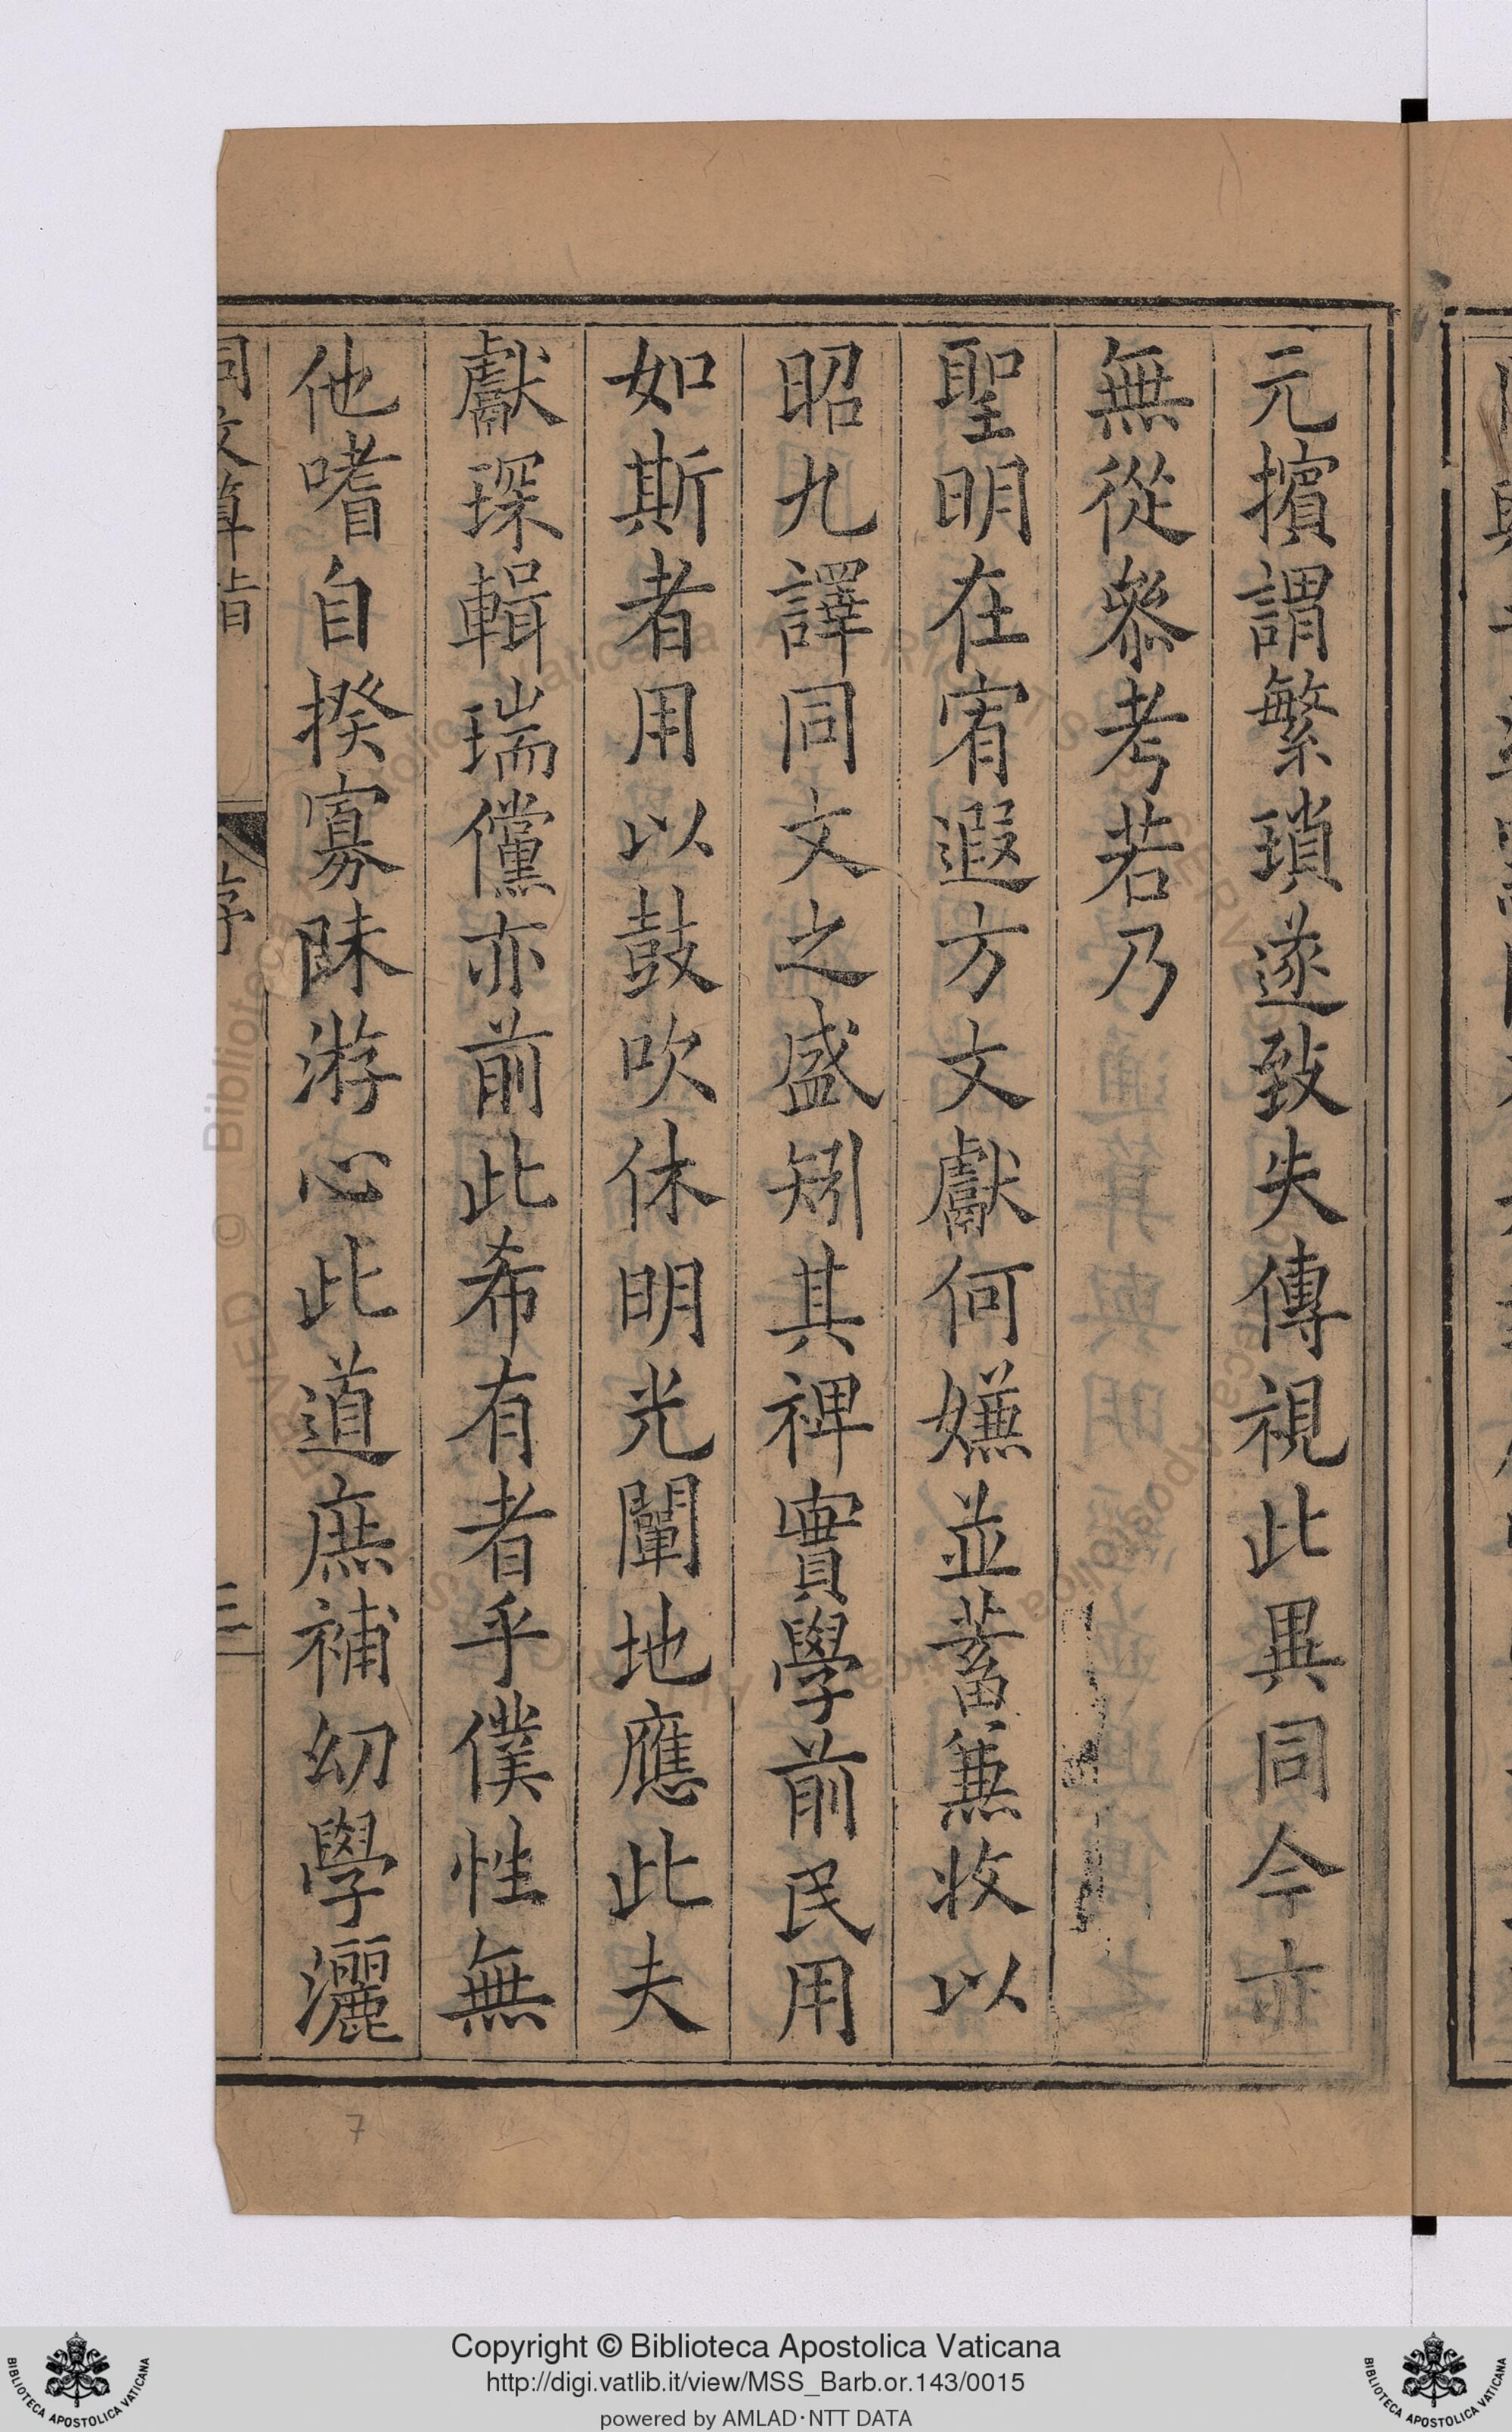 元擯謂繁瑣遂致失傳視此異同今亦
無從叅考若乃
聖明在宥遐方文獻何嫌並蓄兼收以
昭九譯同文之盛矧其裨實學前民用
如斯者用以鼓吹休明光闡地應此夫
獻琛輯瑞儻亦前此希有者乎僕性無
他嗜自揆寡昧游心此道庶補幼學灑
同文算指
序
三
7
Copyright © Biblioteca Apostolica Vaticana
http://digi.vatlib.it/view/MSS_Barb.or.143/0015
powered by AMLAD·NTT DATA
BIBLIOTECA APOSTOLICA VATICANA
BIBLIOTECA APOSTOLICA VATICANA